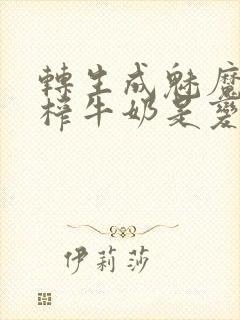 轉生成魅魔
榨牛奶是變
伊莉莎